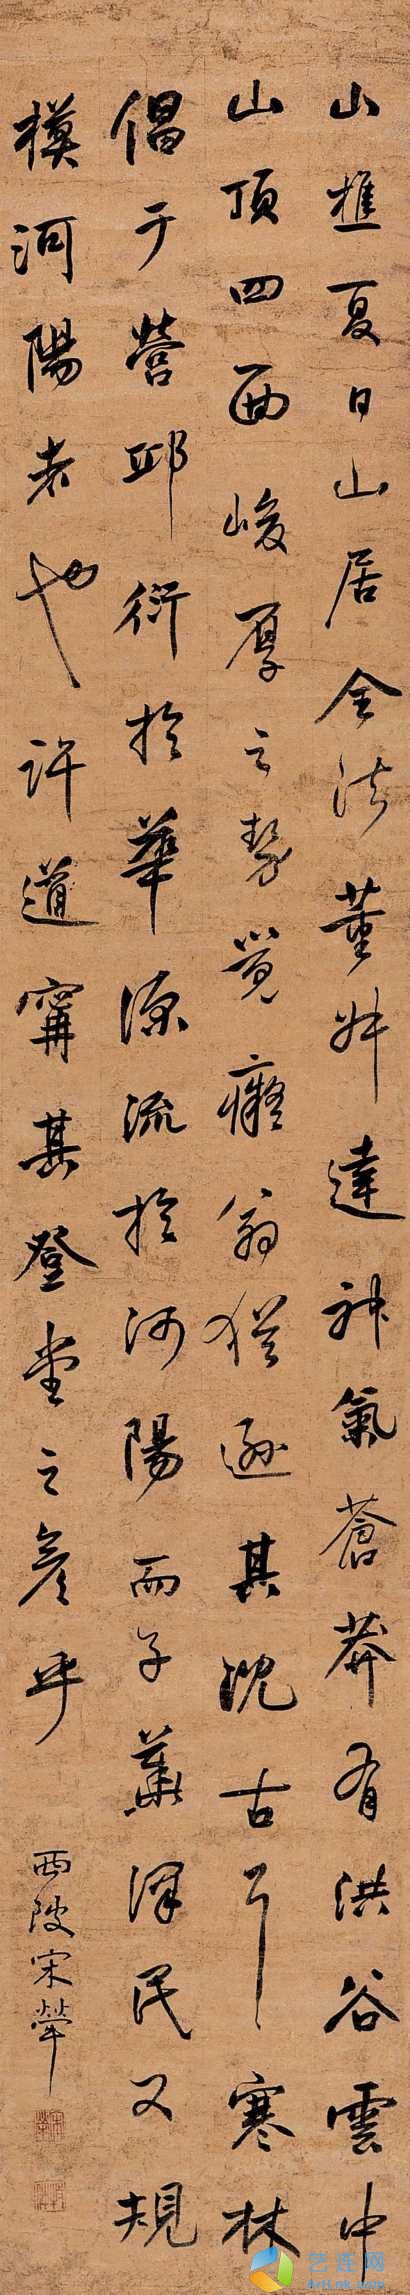 山樵夏日山居全法董叔達神氣蒼莽有洪谷雲中
山頂四面峻厚之勢覺癡翁猶遜其沈古耳寒林
倡于營邱衍於華源流於河陽而子蕭澤民又規
模河陽者也許道寧其登堂之彥乎
西陂宋犖
艺连网